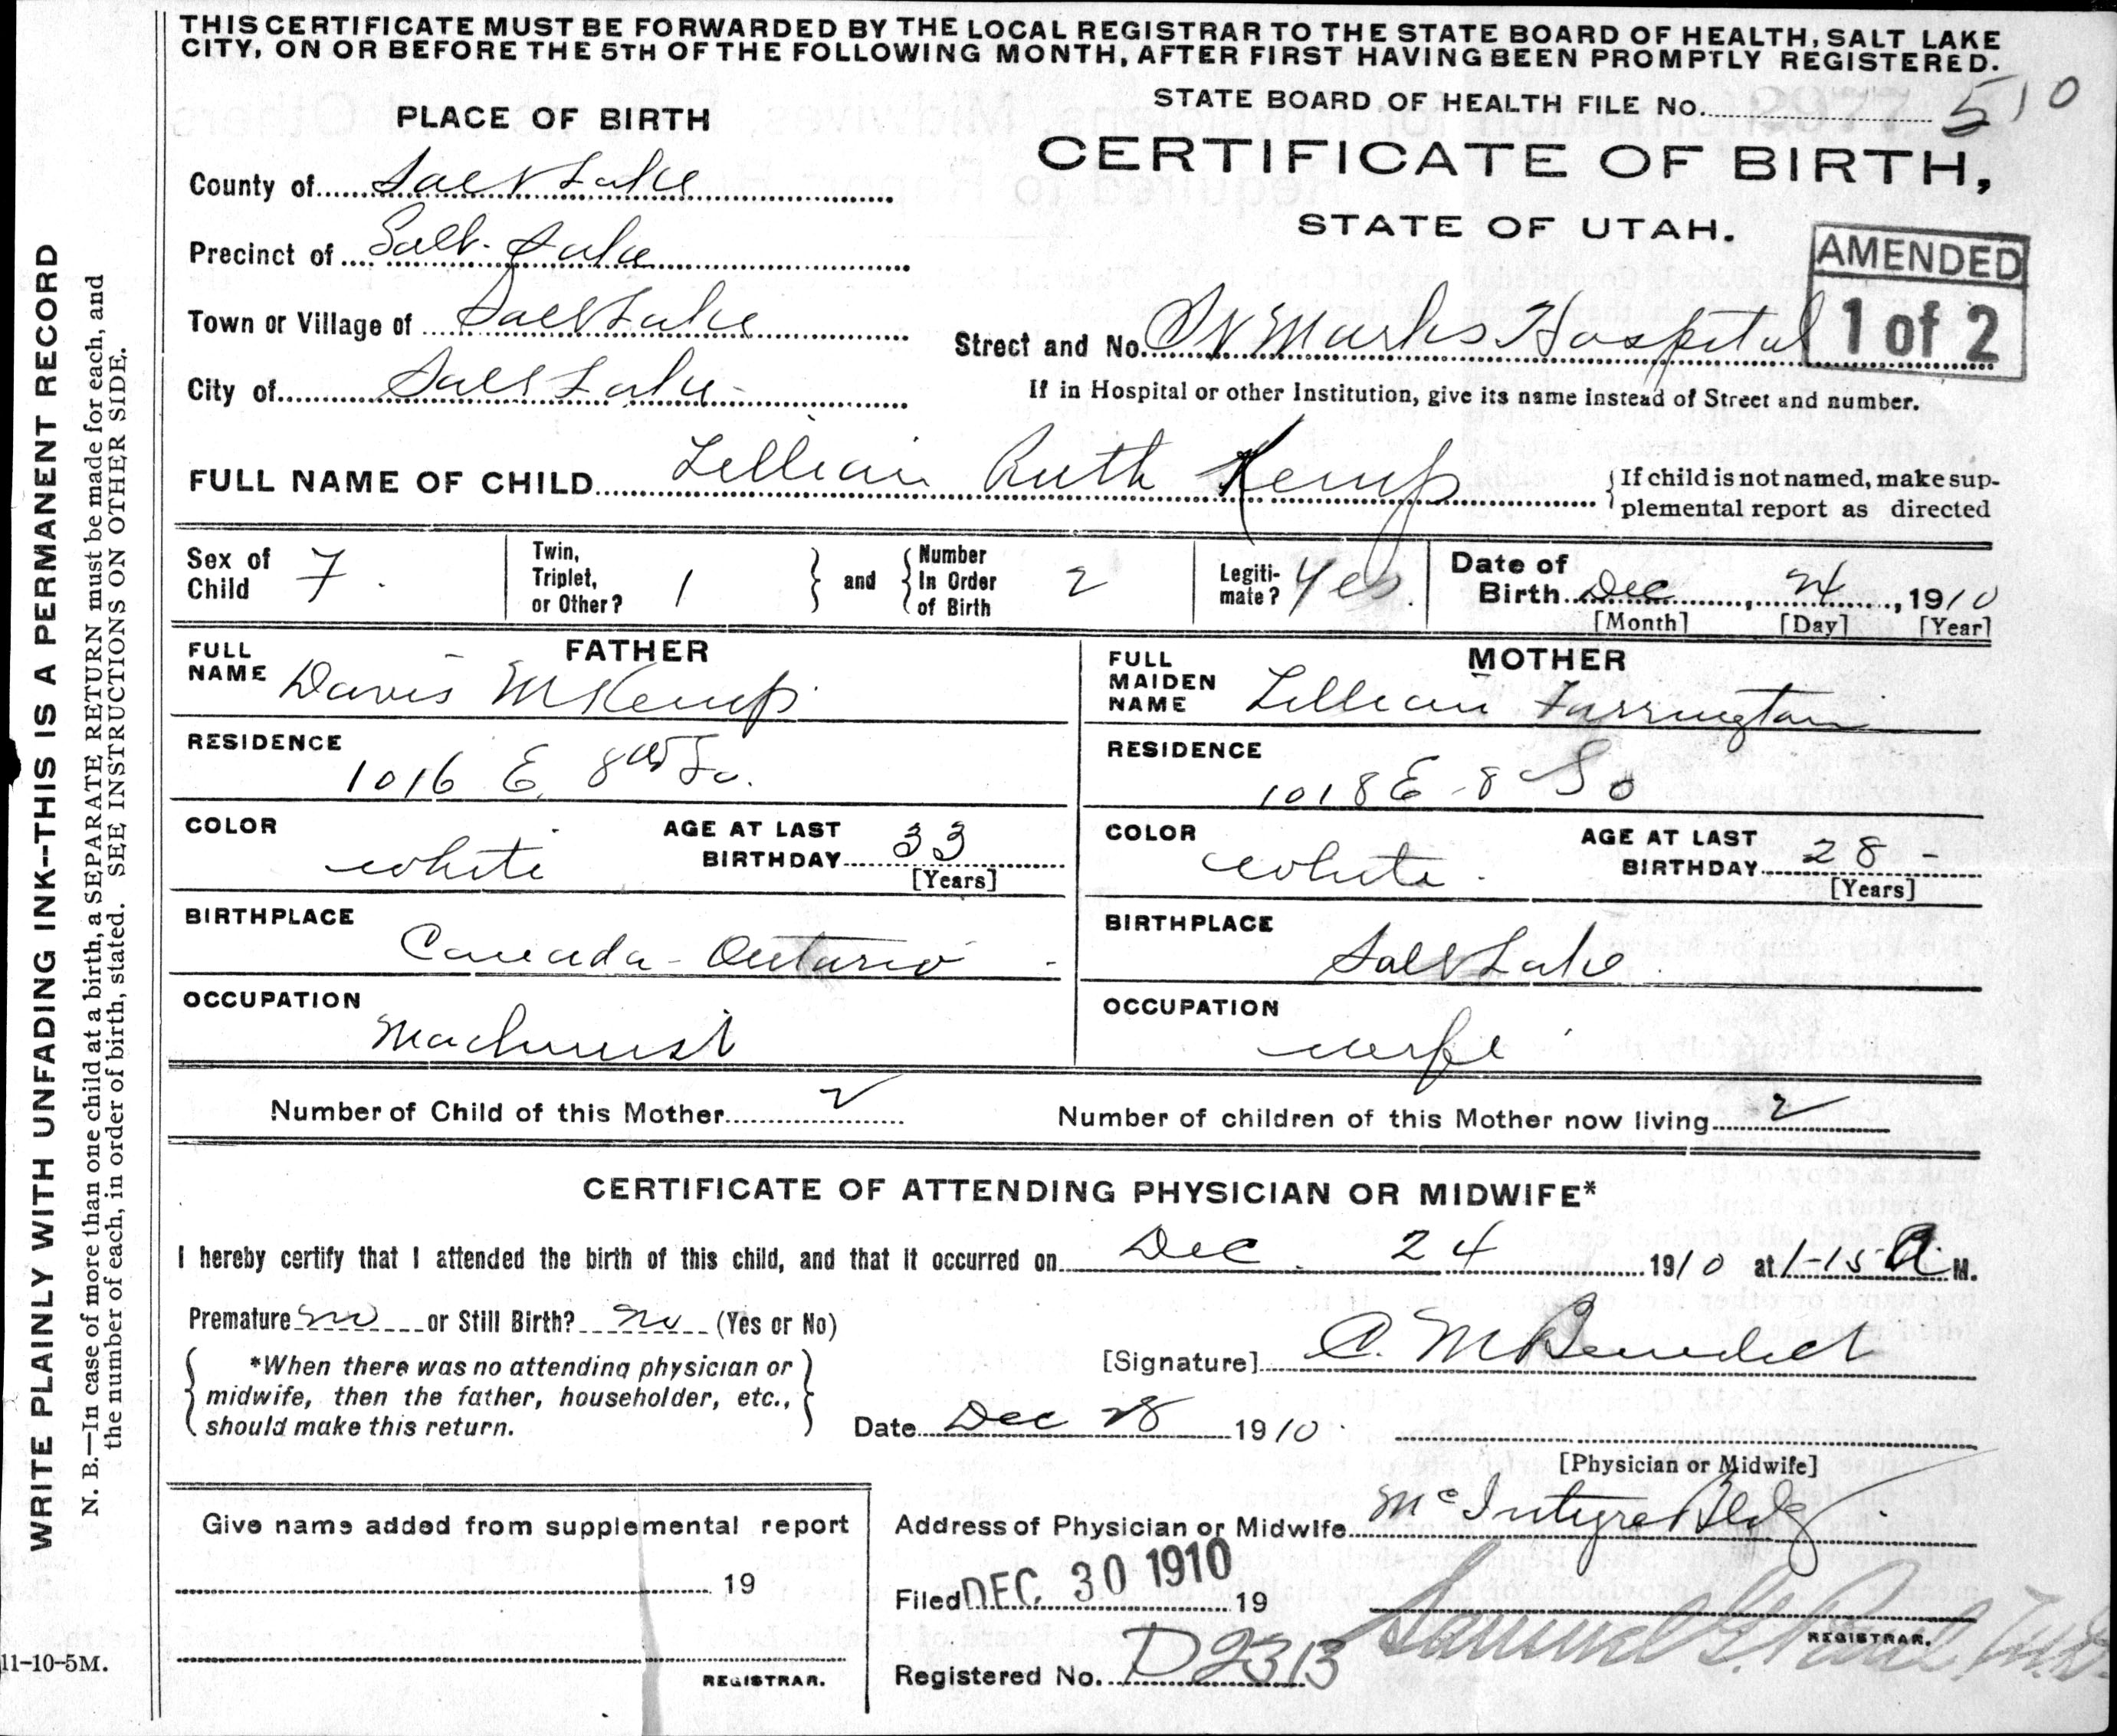 THIS CERTIFICATE MUST BE FORWARDED BY THE LOCAL REGISTRAR TO THE STATE BOARD OF HEALTH, SALT LAKE
CITY, ON OR BEFORE THE 5TH OF THE FOLLOWING MONTH, AFTER FIRST HAVING BEEN PROMPTLY REGISTERED.
STATE BOARD OF HEALTH FILE No. 510
PLACE OF BIRTH
CERTIFICATE OF BIRTH,
STATE OF UTAH.
AMENDED
1 of 2
County of Salt Lake
Precinct of Salt Lake
Town or Village of Salt Lake
Street and No. St Marks Hospital
City of Salt Lake
If in Hospital or other Institution, give its name instead of Street and number.
FULL NAME OF CHILD Lillian Ruth Kemp
If child is not named, make sup-
plemental report as directed
Sex of Child F.
Twin, Triplet, or Other? 1
and
Number In Order of Birth 2
Legiti-mate? Yes.
Date of Birth Dec, 24, 1910
[Month] [Day] [Year]
FATHER
FULL NAME Davis M Kemp.
RESIDENCE
1016 E. 8 So.
COLOR white
AGE AT LAST BIRTHDAY 33
[Years]
BIRTHPLACE
Canada - Ontario
OCCUPATION
Machinist
MOTHER
FULL MAIDEN NAME Lillian Farrington
RESIDENCE
1018 E - 8 So
COLOR white.
AGE AT LAST BIRTHDAY 28 -
[Years]
BIRTHPLACE
Salt Lake.
OCCUPATION
wife
Number of Child of this Mother 2
Number of children of this Mother now living 2
CERTIFICATE OF ATTENDING PHYSICIAN OR MIDWIFE*
I hereby certify that I attended the birth of this child, and that it occurred on Dec. 24 1910 at 1-15 A. M.
Premature no or Still Birth? no (Yes or No)
*When there was no attending physician or
midwife, then the father, householder, etc.,
should make this return.
[Signature] C. M Benedict
Date Dec 28 1910.
[Physician or Midwife]
Give name added from supplemental report
19
REGISTRAR.
Address of Physician or Midwife McIntyre Bldg.
Filed DEC. 30 1910 19
Samuel G. Paul, M.D.
REGISTRAR.
Registered No. D2313
11-10-5M.
WRITE PLAINLY WITH UNFADING INK--THIS IS A PERMANENT RECORD
N. B.—In case of more than one child at a birth, a SEPARATE RETURN must be made for each, and
the number of each, in order of birth, stated. SEE INSTRUCTIONS ON OTHER SIDE.